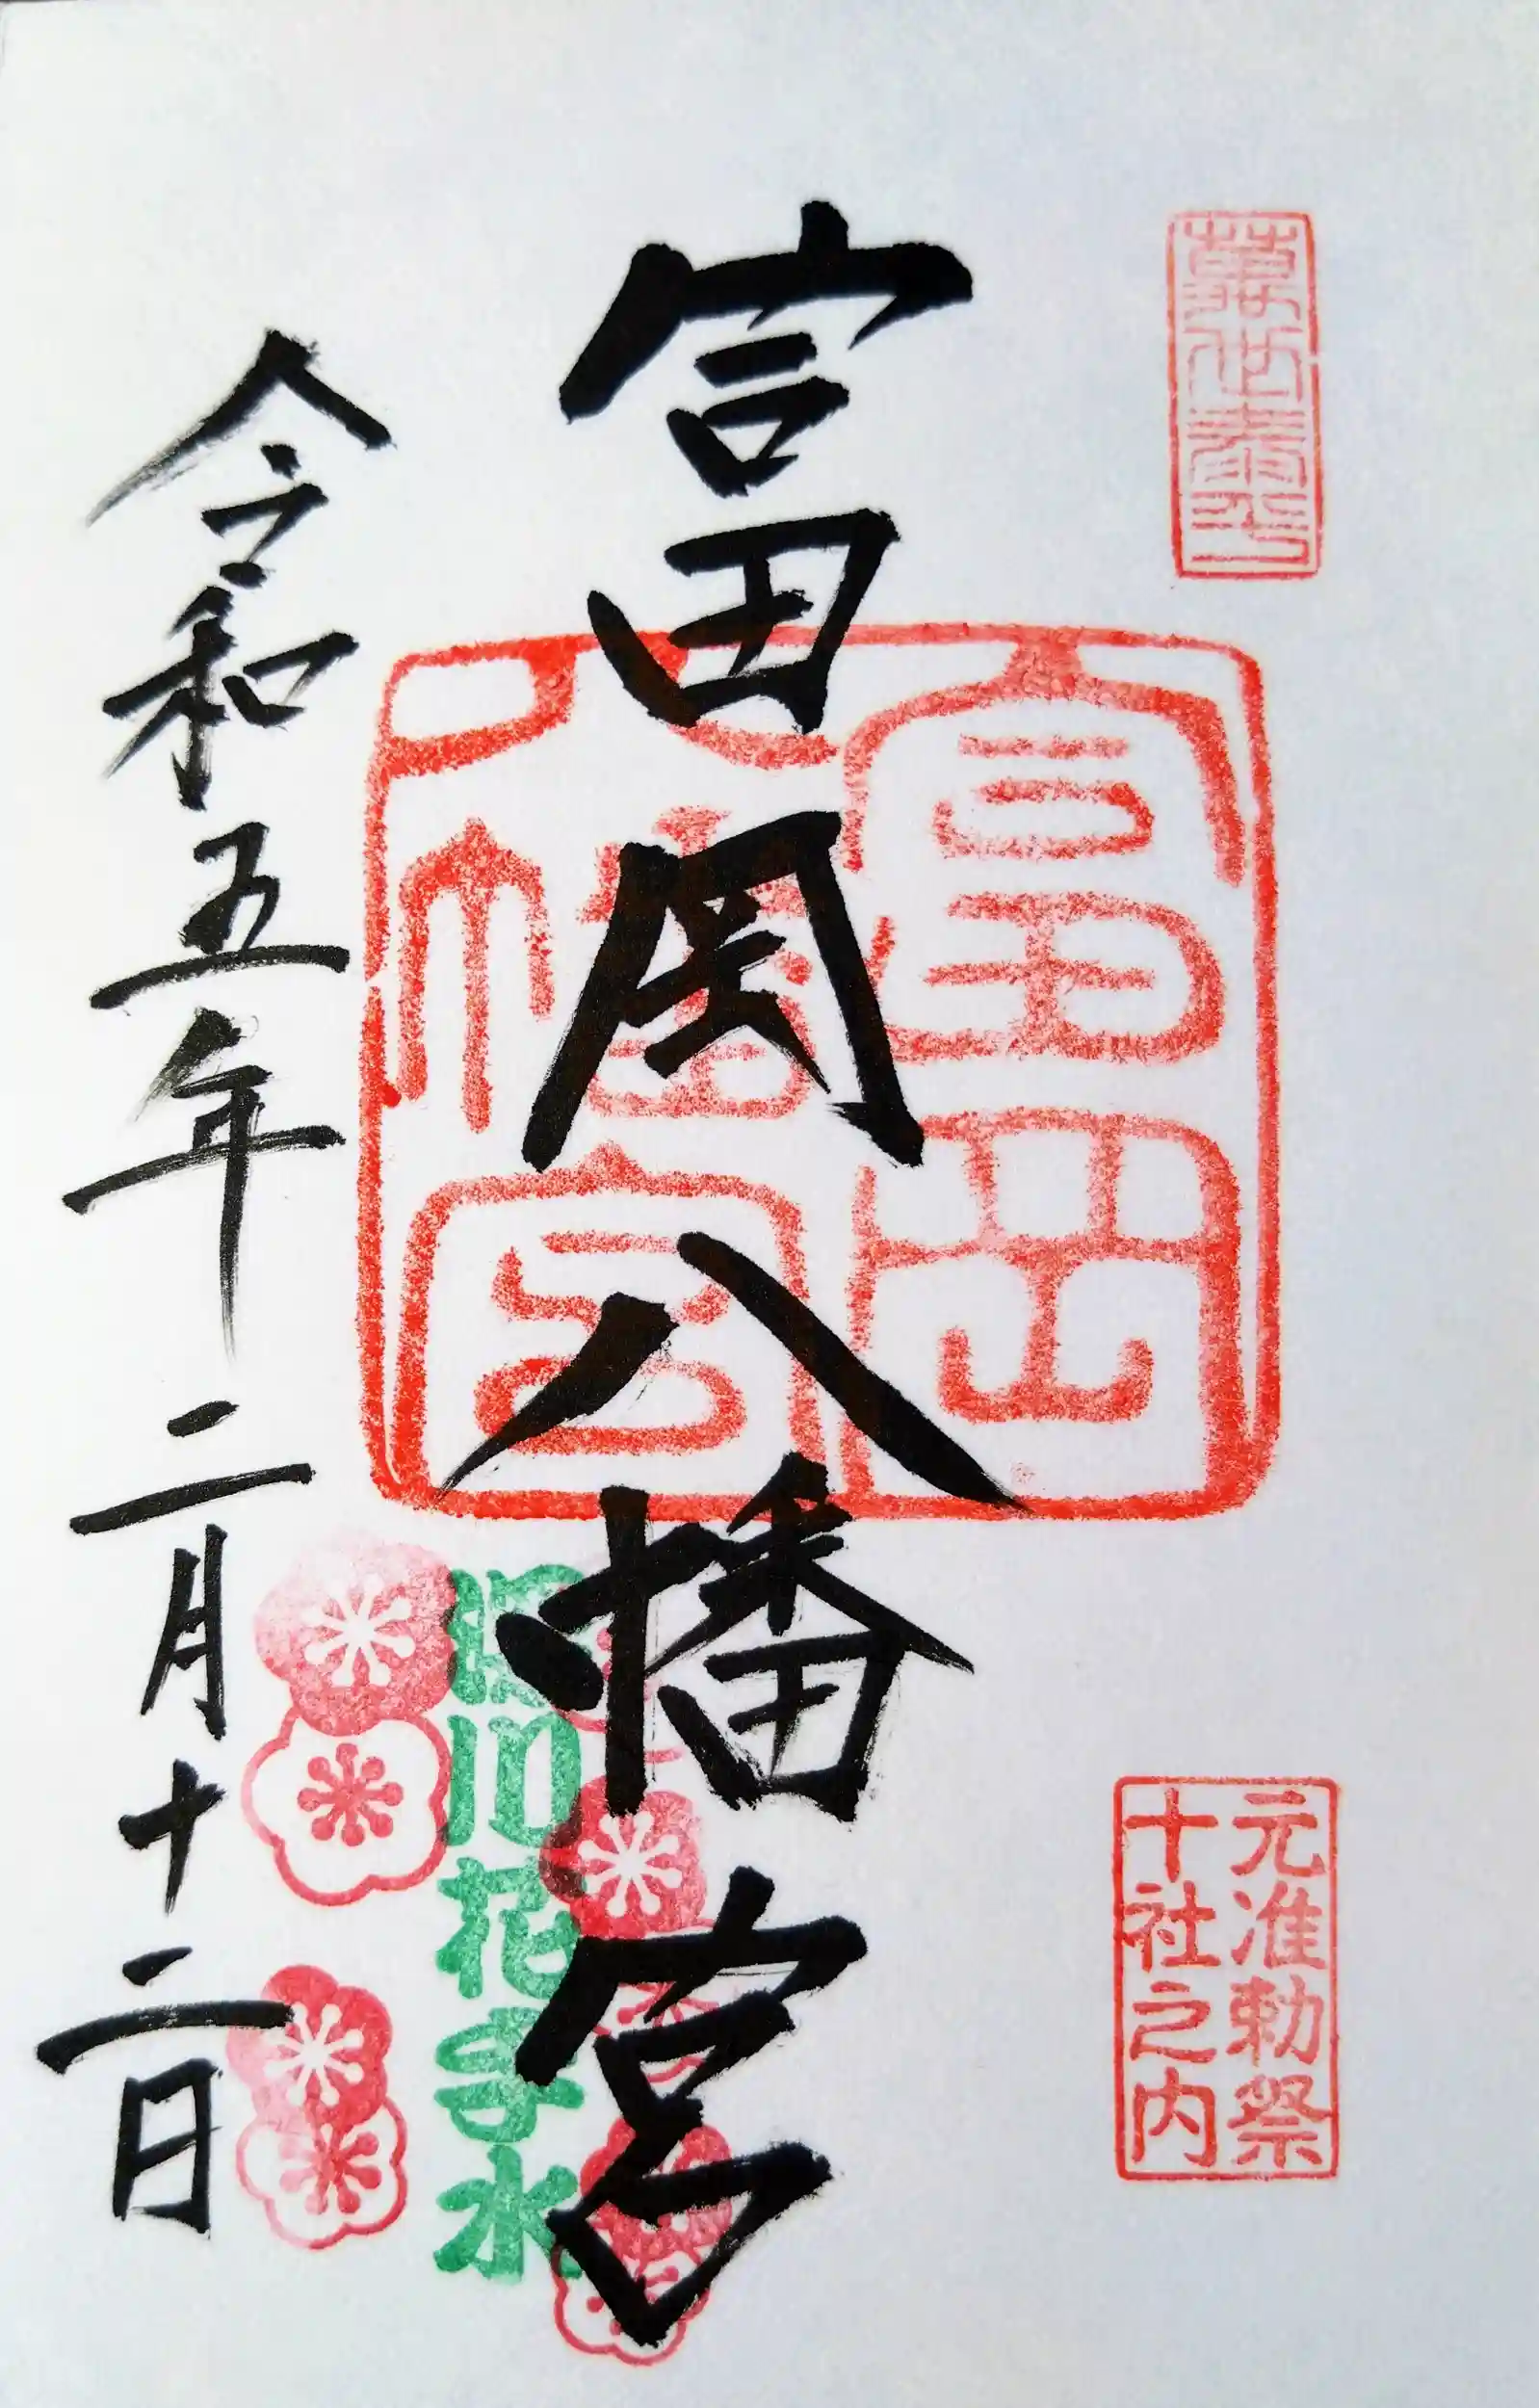 萬世泰平
元准勅祭
十社之内
富岡八幡宮
富岡
八幡宮
深川花手水
令和五年二月十二日